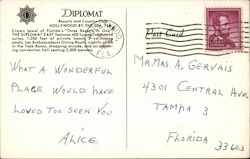 DIPLOMAT
Resorts and Country Club
HOLLYWOOD-BY-THE-SEA, FLA.
Crown Jewel of Florida's "Three Resorts In One"
THE DIPLOMAT EAST features 600
1,200 feet of private beach,
suites,
pools, Les Ambassadeurs Dining Room,
in the Tack Room, shopping arcade, and
convention hall seating 2,000 persons.
Post Card
FLA
WHAT A WONDERFUL
PLACE WOULD HAVE
LOVED TOO SEEN YOU
ALICE
MR. MRS A. GERVAIS
4301 CENTRAL AVE
TAMPA 3
FLORIDA
33603